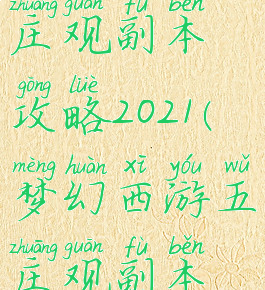 zhuāng guān fù běn
庄观副本
gōng lüè
攻略2021(
mèng huàn xī yóu wǔ
梦幻西游五
zhuāng guān fù běn
庄观副本